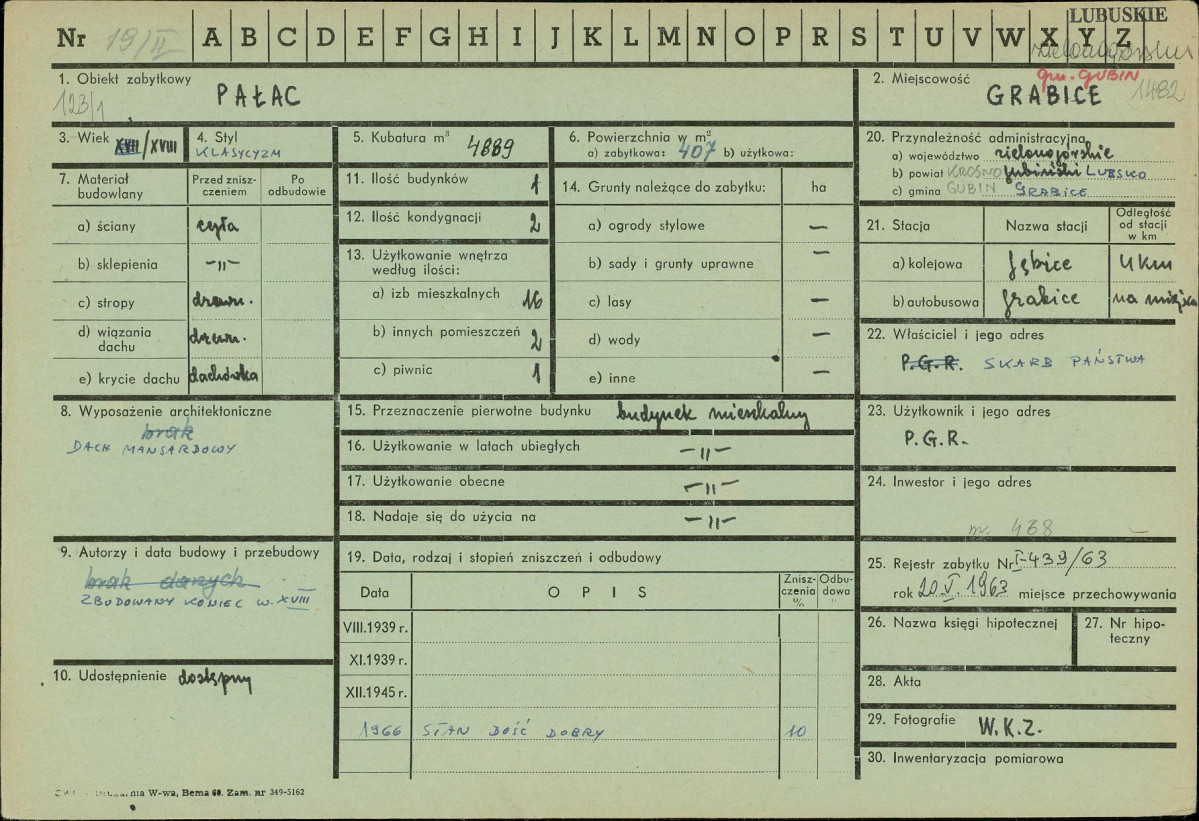 LUBUSKIE
Nr 19/II A B C D E F G H I J K L M N O P R S T U V W X Y Z
zielonogórskie
1. Obiekt zabytkowy
123/1
PAŁAC
2. Miejscowość
gm. GUBIN
GRABICE 1482
3. Wiek XVII/XVIII
4. Styl
KLASYCYZM
5. Kubatura m³ 4889
6. Powierzchnia w m²
a) zabytkowa: 407 b) użytkowa:
7. Materiał budowlany
Przed znisz-
czeniem
Po
odbudowie
a) ściany cegła
b) sklepienia –„–
c) stropy drewn.
d) wiązania
dachu drewn.
e) krycie dachu dachówka
8. Wyposażenie architektoniczne
brak
DACH MANSARDOWY
9. Autorzy i data budowy i przebudowy
brak danych
ZBUDOWANY KONIEC W. XVIII
10. Udostępnienie dostępny
11. Ilość budynków 1
12. Ilość kondygnacji 2
13. Użytkowanie wnętrza
według ilości:
a) izb mieszkalnych 16
b) innych pomieszczeń 2
c) piwnic 1
14. Grunty należące do zabytku: ha
a) ogrody stylowe –
b) sady i grunty uprawne –
c) lasy –
d) wody –
e) inne –
15. Przeznaczenie pierwotne budynku budynek mieszkalny
16. Użytkowanie w latach ubiegłych –„–
17. Użytkowanie obecne –„–
18. Nadaje się do użycia na –„–
19. Data, rodzaj i stopień zniszczeń i odbudowy
Data
OPIS
Znisz-
czenia
%
Odbu-
dowa
"
VIII.1939 r.
XI.1939 r.
XII.1945 r.
1966 STAN DOŚĆ DOBRY 10
20. Przynależność administracyjna
a) województwo zielonogórskie
b) powiat KROSNO gubiński LUBSKO
c) gmina GUBIN GRABICE
21. Stacja
Nazwa stacji
Odległość
od stacji
w km
a) kolejowa Jębice 4 km
b) autobusowa Grabice na miejscu
22. Właściciel i jego adres
P.G.R. SKARB PAŃSTWA
23. Użytkownik i jego adres
P.G.R.
24. Inwestor i jego adres
nr. 438 –
25. Rejestr zabytku Nr I-439/63
rok 20.V.1963 miejsce przechowywania
26. Nazwa księgi hipotecznej
27. Nr hipo-
teczny
28. Akta
29. Fotografie W.K.Z.
30. Inwentaryzacja pomiarowa
nia W-wa, Bema 60. Zam. nr 349-5162